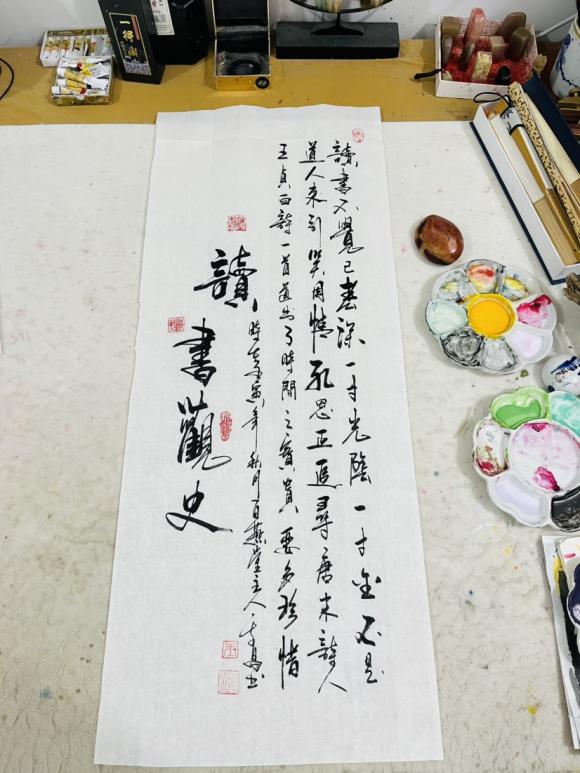 讀書不覺已春深一寸光陰一寸金不是
道人來引笑周情孔思正追尋唐末詩人
王貞白詩一首道出了時間之寶貴要多珍惜
時在壬寅年秋月百燕堂主人
讀書觀史
一得阁